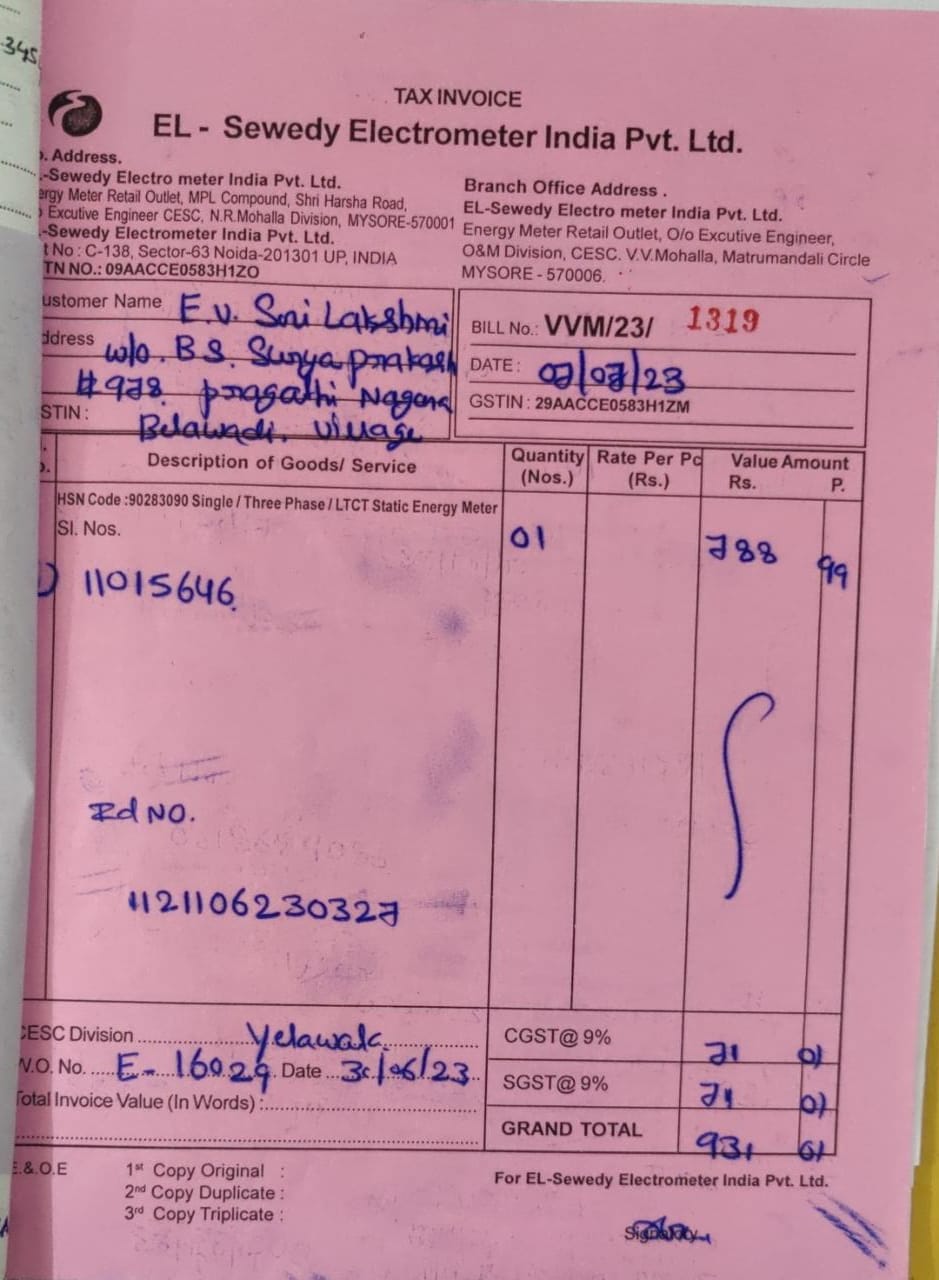 345
TAX INVOICE
EL - Sewedy Electrometer India Pvt. Ltd.
. Address.
-Sewedy Electro meter India Pvt. Ltd.
ergy Meter Retail Outlet, MPL Compound, Shri Harsha Road,
Excutive Engineer CESC, N.R.Mohalla Division, MYSORE-570001
-Sewedy Electrometer India Pvt. Ltd.
t No : C-138, Sector-63 Noida-201301 UP, INDIA
TN NO.: 09AACCE0583H1ZO
Branch Office Address .
EL-Sewedy Electro meter India Pvt. Ltd.
Energy Meter Retail Outlet, O/o Excutive Engineer,
O&M Division, CESC. V.V.Mohalla, Matrumandali Circle
MYSORE - 570006.
ustomer Name E.V. Sri Lakshmi
ddress w/o. B.S. Surya prakash
#978. pragathi Nagara
STIN :
Belawadi. village
BILL No.: VVM/23/ 1319
DATE : 07/07/23
GSTIN : 29AACCE0583H1ZM
Description of Goods/ Service
Quantity (Nos.)
Rate Per Pc (Rs.)
Value Amount
Rs. P.
HSN Code :90283090 Single / Three Phase / LTCT Static Energy Meter
Sl. Nos.
01 788 99
) 11015646
Rd NO.
1121106230327
CESC Division Yelawala
W.O. No. E-16029 Date 30/06/23
Total Invoice Value (In Words) :
CGST@ 9% 71 01
SGST@ 9% 71 01
GRAND TOTAL 931 01
E.&.O.E
1st Copy Original :
2nd Copy Duplicate :
3rd Copy Triplicate :
For EL-Sewedy Electrometer India Pvt. Ltd.
Signatory